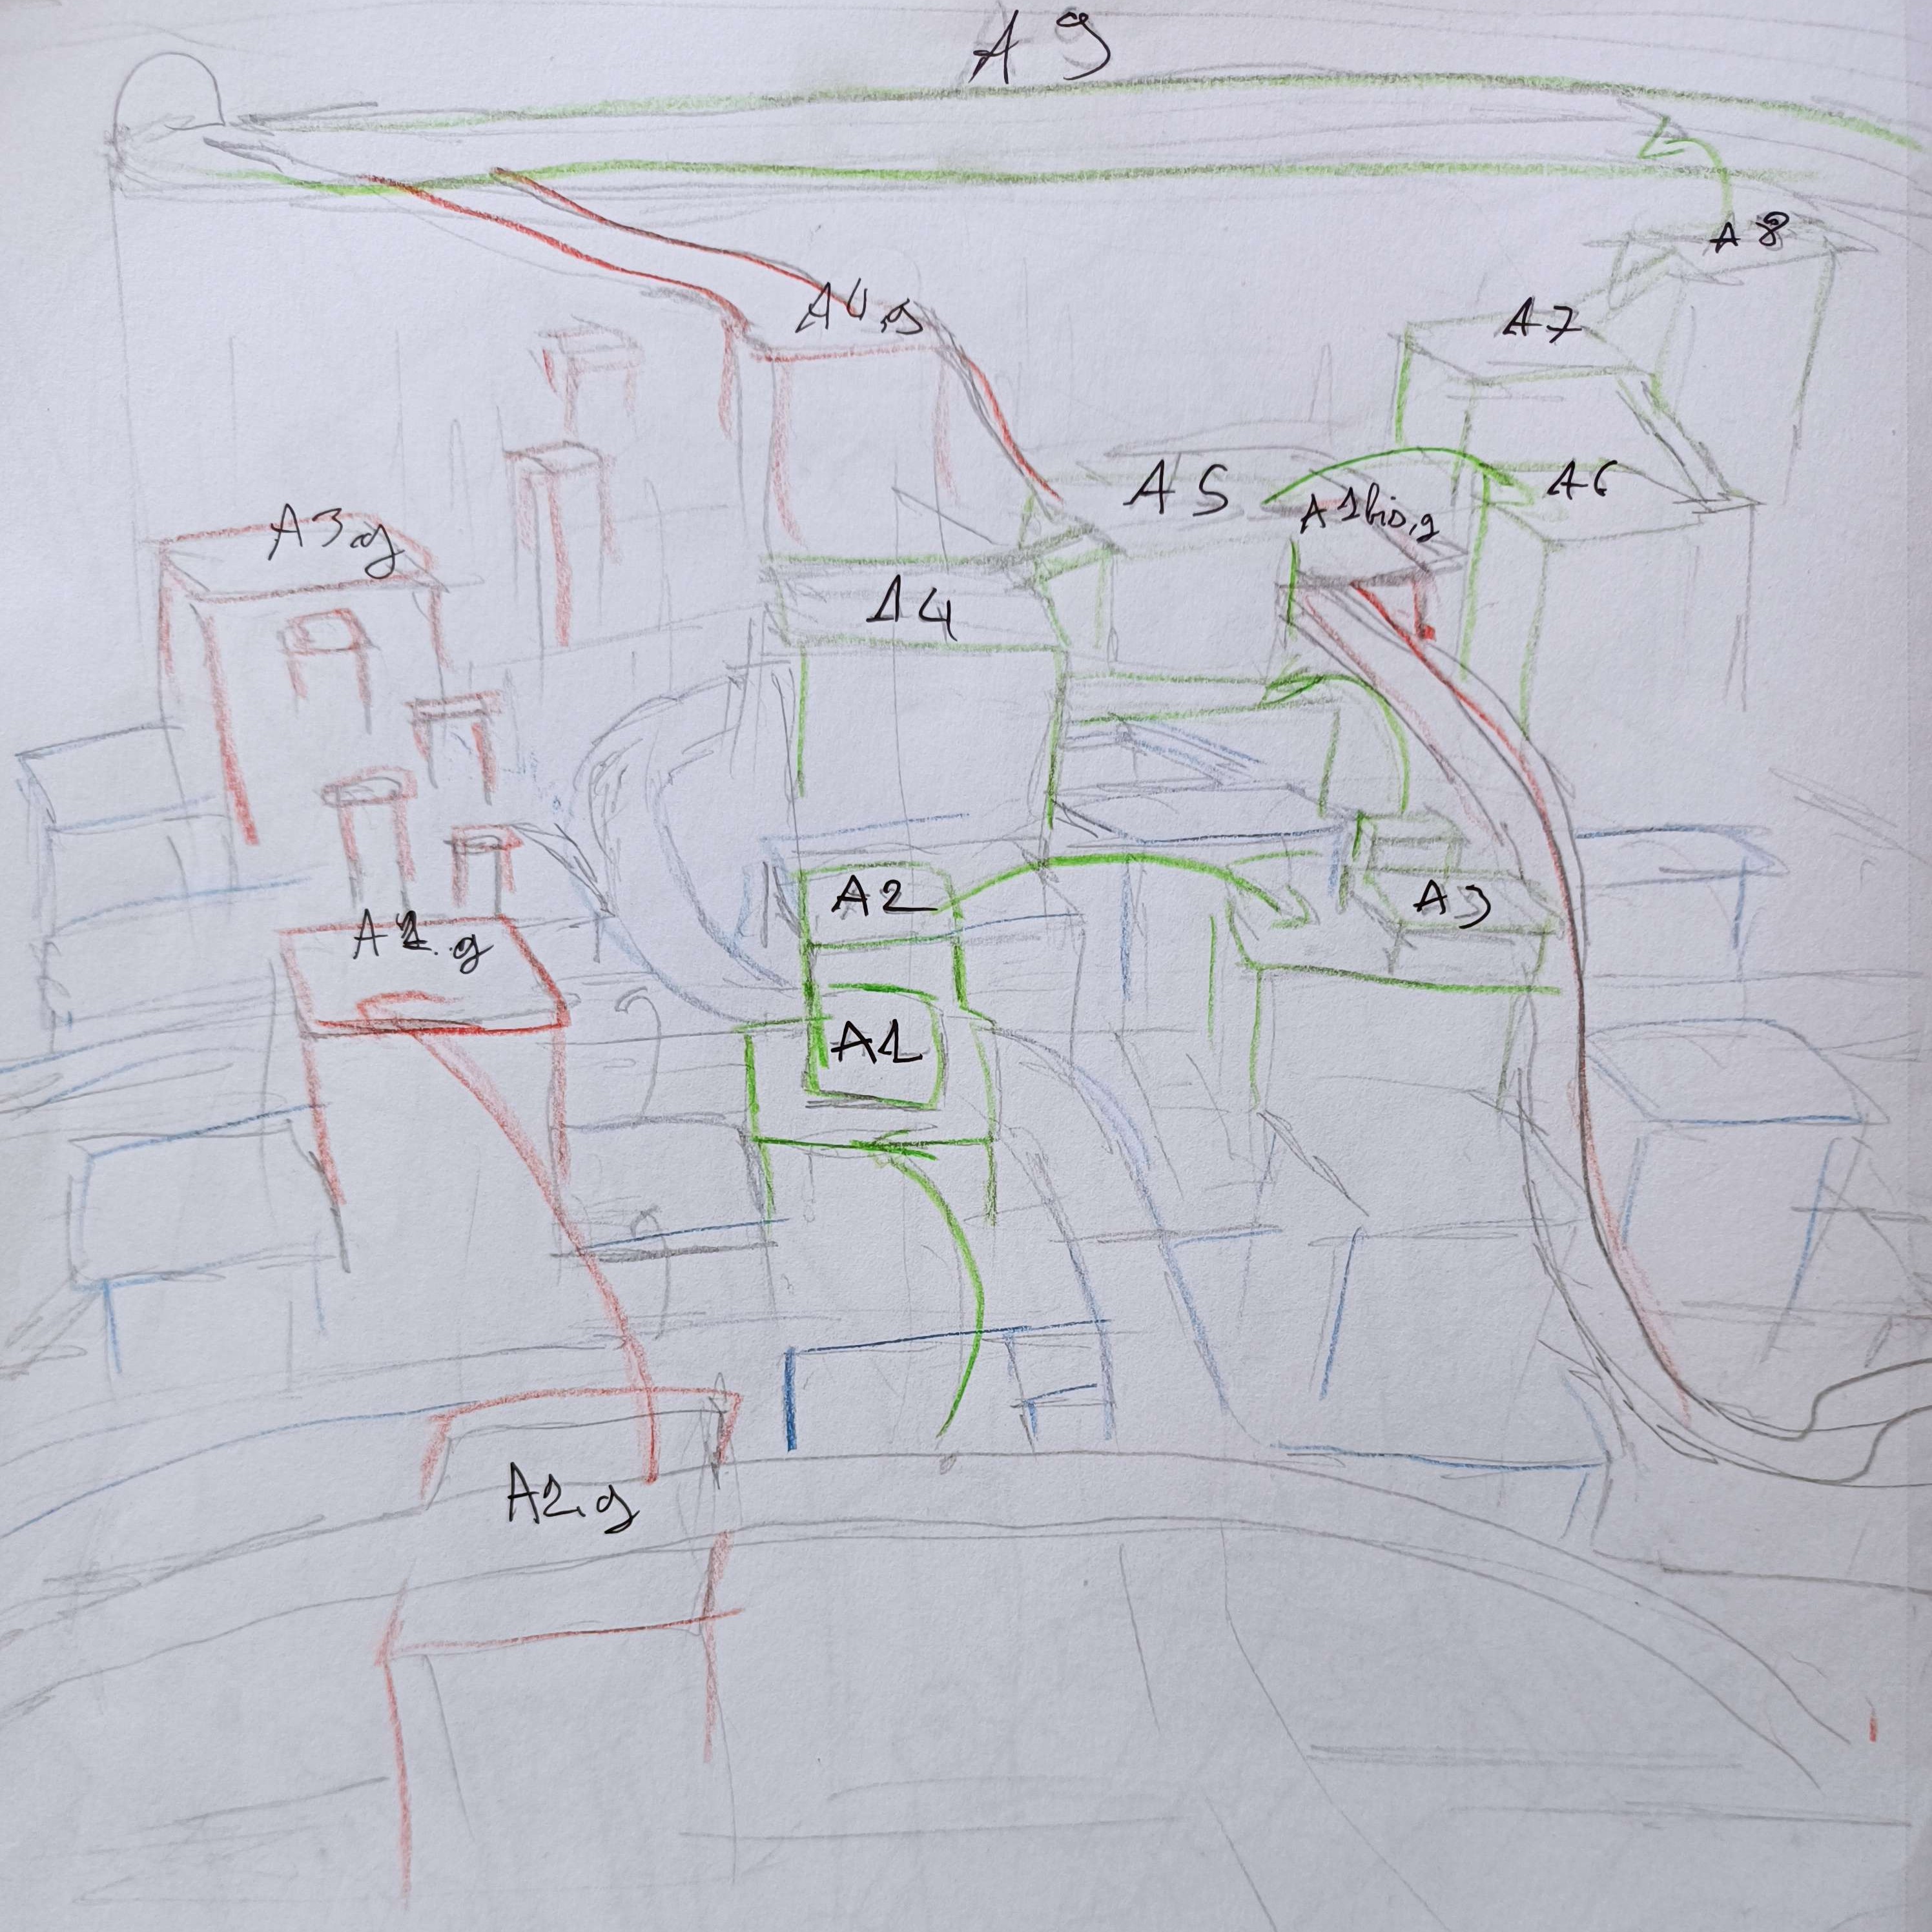 A9
A8
A4.g
A7
A5
A6
A1bis.g
A3.g
A4
A2
A3
A1.g
A1
A2.g